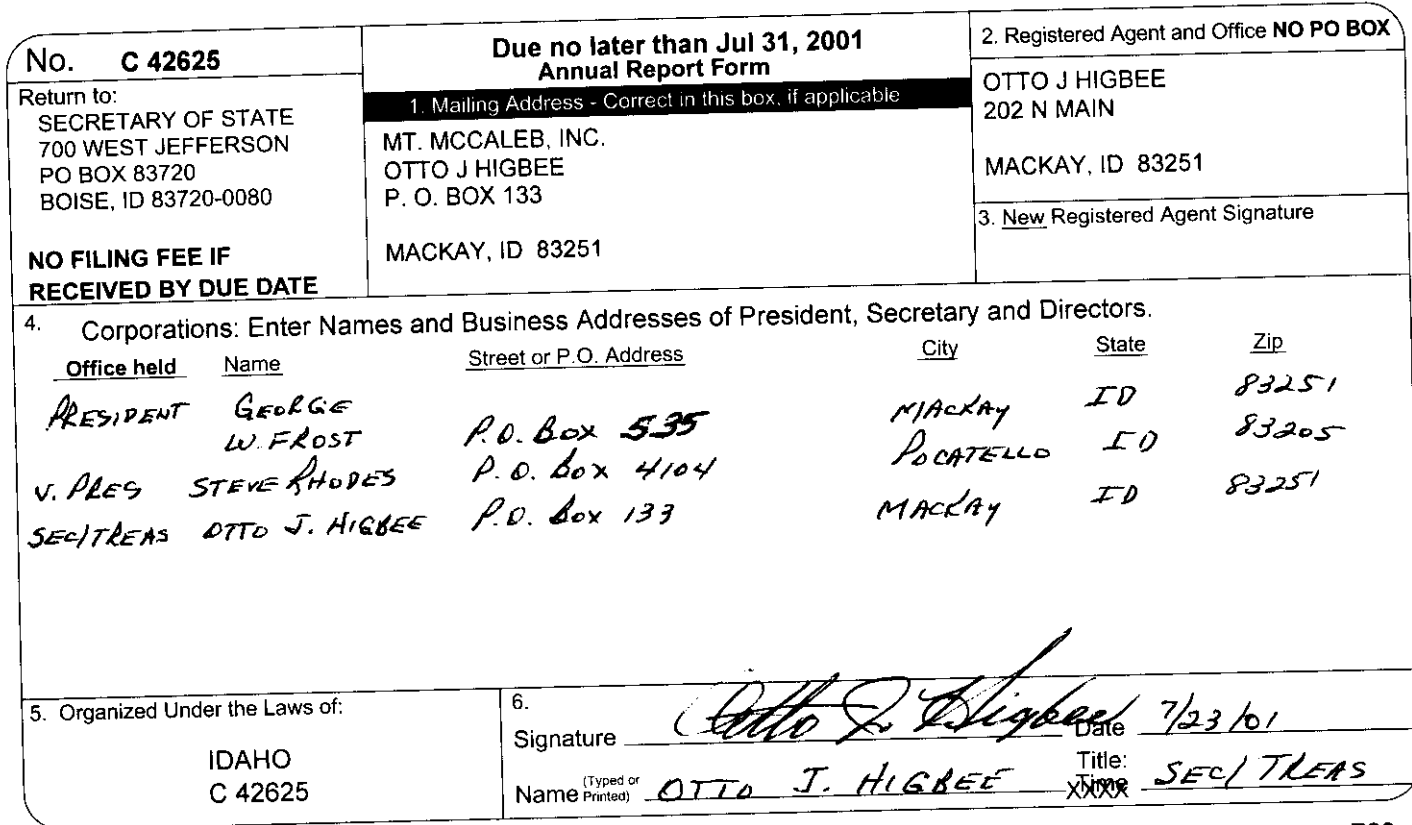 No. C 42625
Return to:
SECRETARY OF STATE
700 WEST JEFFERSON
PO BOX 83720
BOISE, ID 83720-0080
NO FILING FEE IF
RECEIVED BY DUE DATE
Due no later than Jul 31, 2001
Annual Report Form
1. Mailing Address - Correct in this box, if applicable
MT. MCCALEB, INC.
OTTO J HIGBEE
P. O. BOX 133
MACKAY, ID 83251
2. Registered Agent and Office NO PO BOX
OTTO J HIGBEE
202 N MAIN
MACKAY, ID 83251
3. New Registered Agent Signature
4. Corporations: Enter Names and Business Addresses of President, Secretary and Directors.
Office held Name Street or P.O. Address City State Zip
PRESIDENT GEORGE
W. FROST P.O. Box 535 MACKAY ID 83251
V. PRES STEVE RHODES P.O. Box 4104 POCATELLO ID 83205
SEC/TREAS OTTO J. HIGBEE P.O. Box 133 MACKAY ID 83251
5. Organized Under the Laws of:
IDAHO
C 42625
6.
Signature Otto J. Higbee Date 7/23/01
Name (Typed or Printed) OTTO J. HIGBEE Title: SEC/TREAS